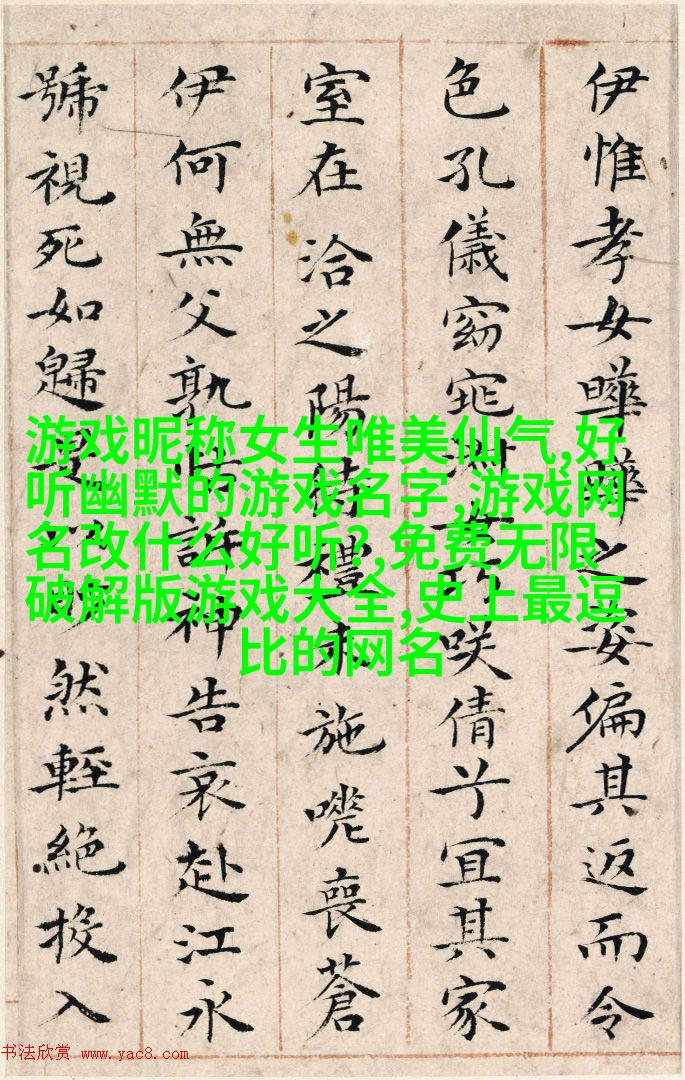 伊惟孝女曄曄之姿偏其返而令
色孔儀窈窕淑女巧咲倩兮宜其家
室在洽之陽待禮未施嗟喪蒼
伊何無父孰怙訴神告哀赴江永
號視死如歸是以眇然輕絕投入
游戏昵称女生唯美仙气,好
听幽默的游戏名字,游戏网
名改什么好听?,免费无限
破解版游戏大全,史上最逗
比的网名
书法欣赏 www.yac8.com